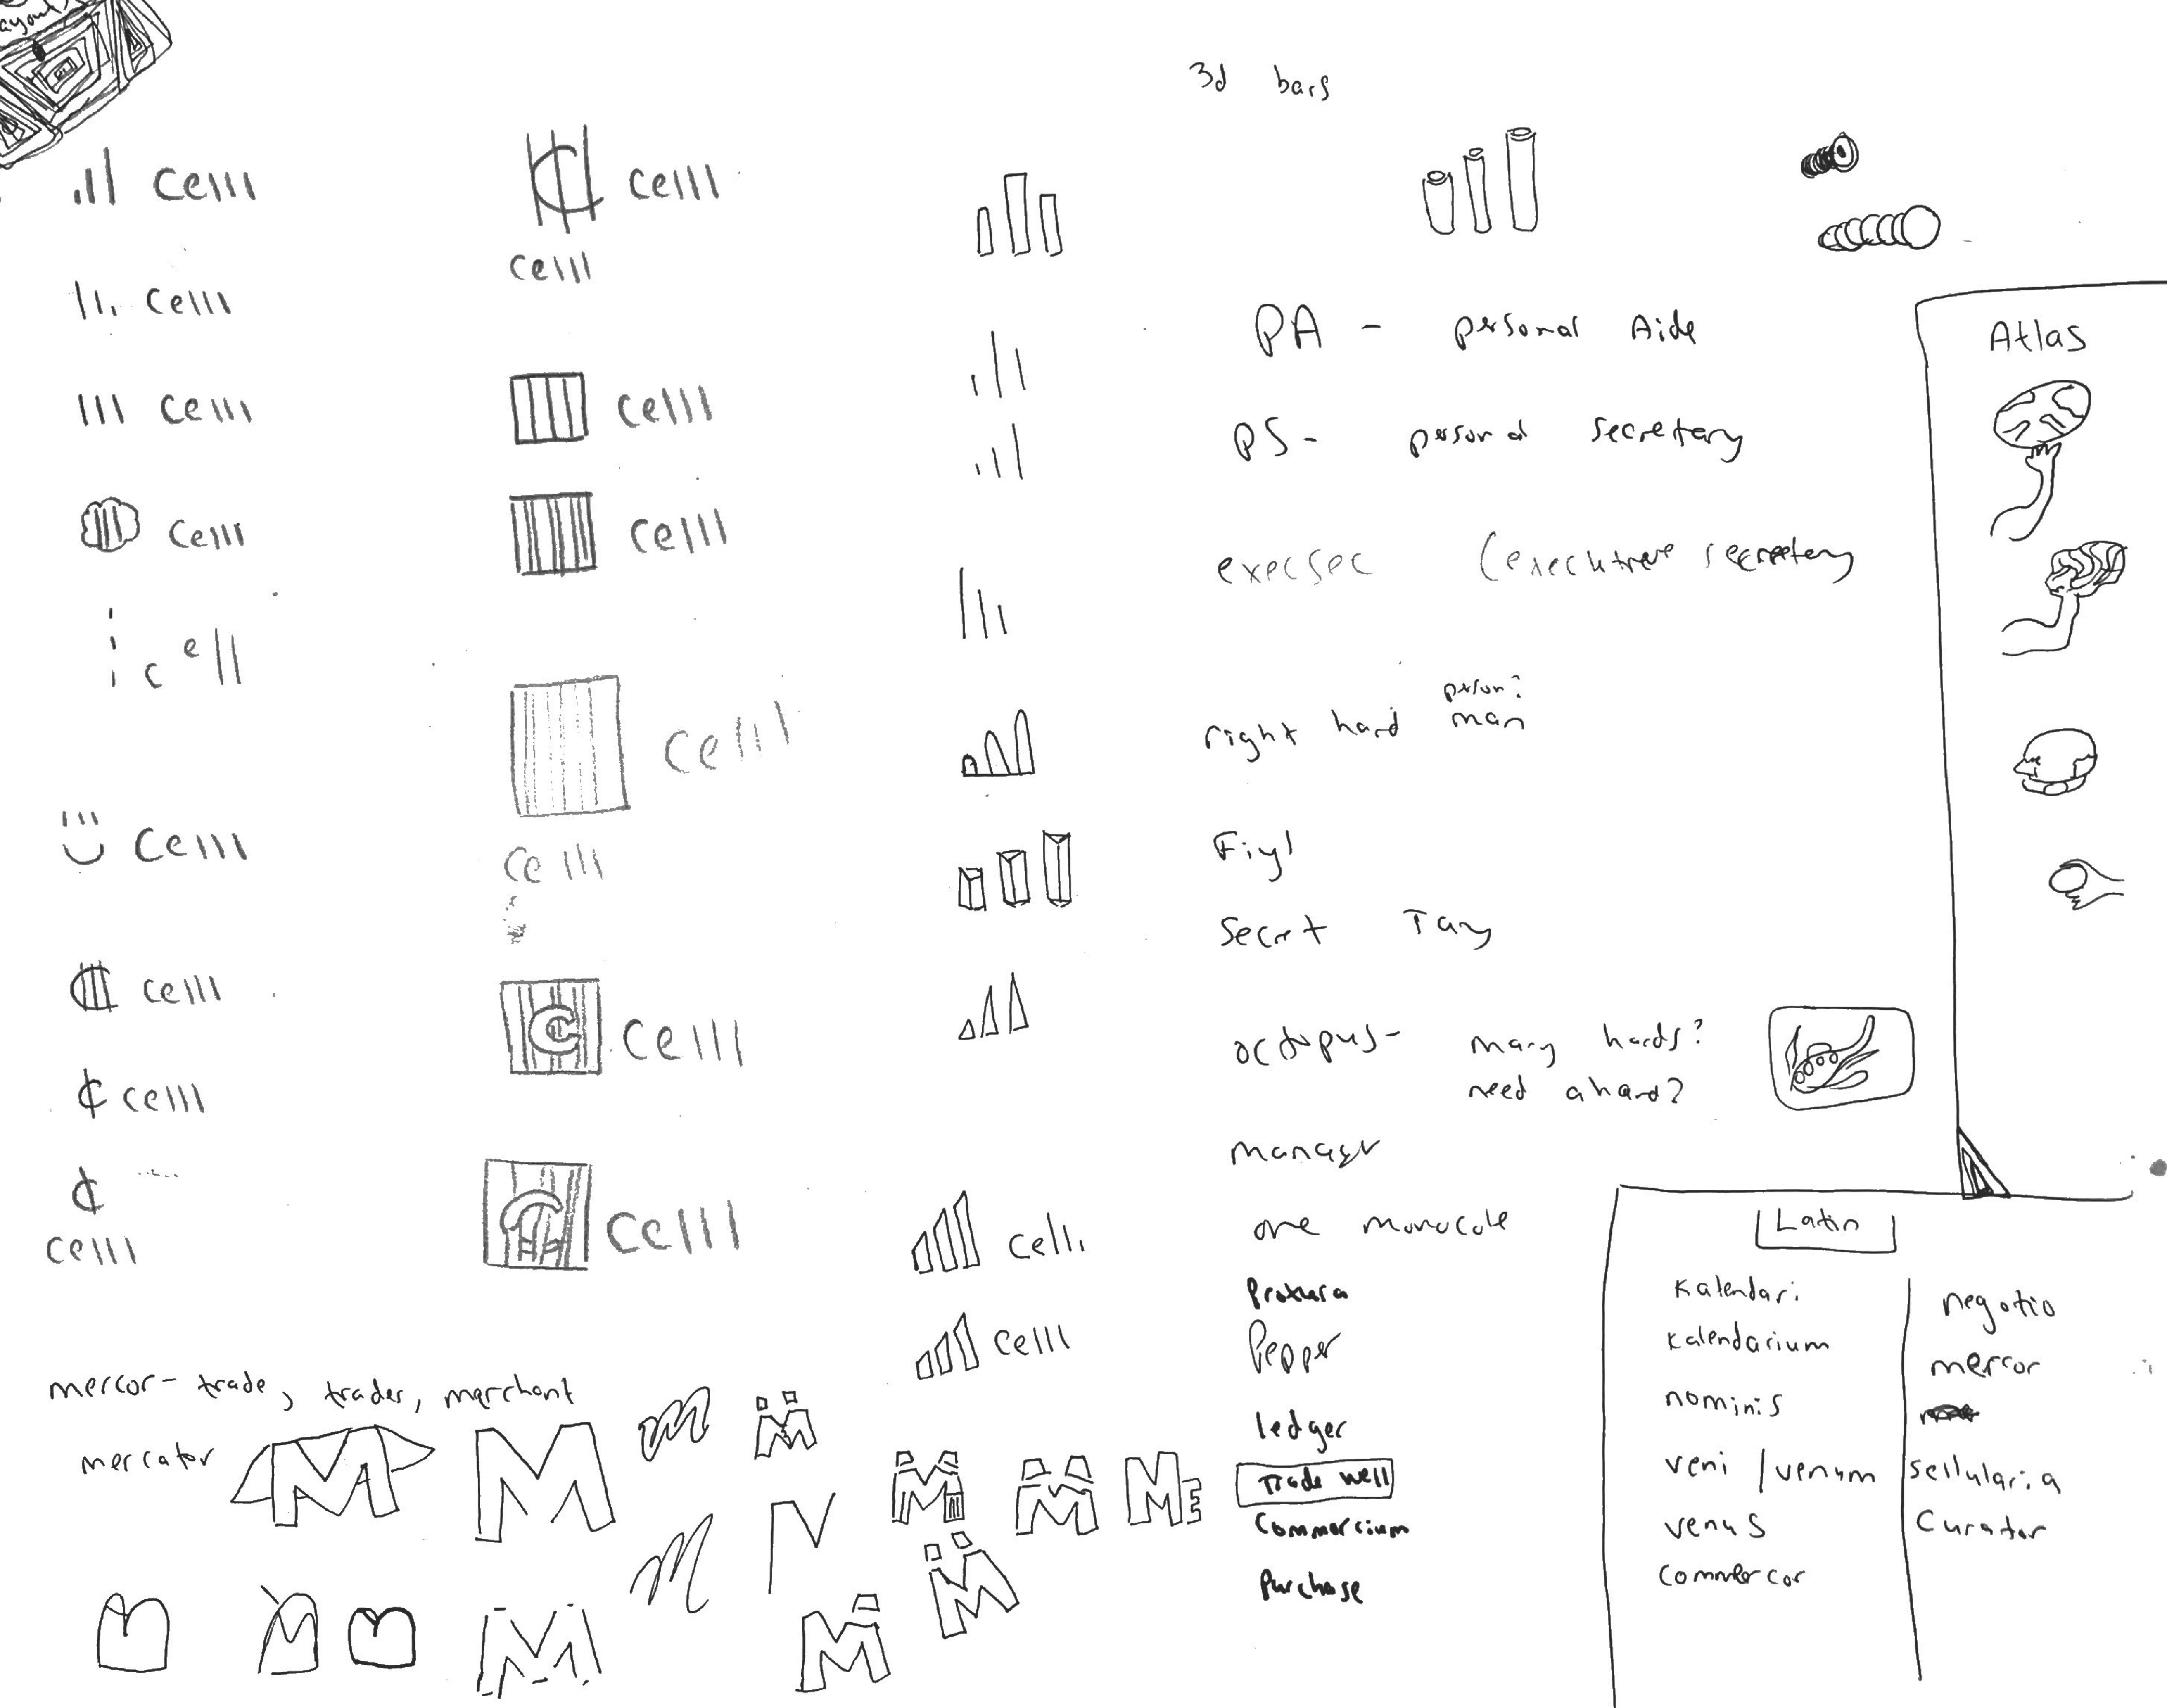 3d bars
celll
celll
celll
celll
celll
cell
celll
celll
celll
celll
celll
celll
celll
celll
celll
celll
celll
celll
celll
PA - personal Aide
PS - personal secretary
execsec (executive secretary
person?
right hand man
Secret Tary
octopus - many hands?
need a hand?
manager
one monocole
Pepper
ledger
Trade well
Commercium
Purchase
Atlas
Latin
Kalendari
Kalendarium
nominis
veni / venum
venus
commercor
negotio
mercor
sellularia
Curator
celll
mercor - trade, trader, merchant
mercator
M
M
M
ME